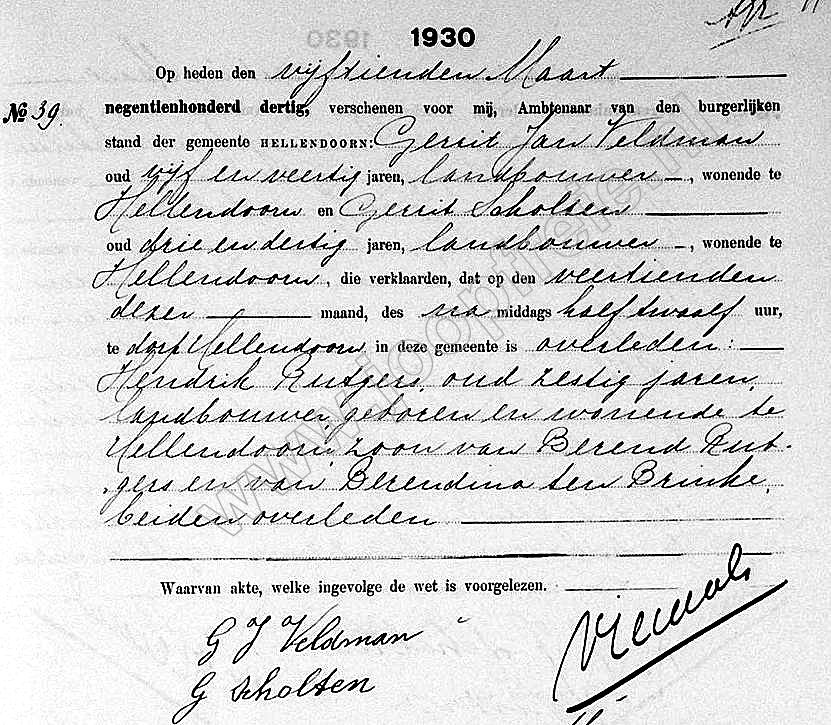 1930
Op heden den vijftienden Maart
No 39. negentienhonderd dertig, verschenen voor mij, Ambtenaar van den burgerlijken
stand der gemeente HELLENDOORN: Gerrit Jan Veldman
oud vijf en veertig jaren, landbouwer —, wonende te
Hellendoorn en Gerrit Scholten
oud drie en dertig jaren, landbouwer —, wonende te
Hellendoorn, die verklaarden, dat op den veertienden
dezer — maand, des na middags half twaalf uur,
te dorp Hellendoorn in deze gemeente is overleden: —
Hendrik Rutgers, oud zestig jaren,
landbouwer, geboren en wonende te
Hellendoorn, zoon van Berend Rut-
gers en van Berendina ten Brinke,
beiden overleden —
Waarvan akte, welke ingevolge de wet is voorgelezen. —
G J Veldman
G Scholten